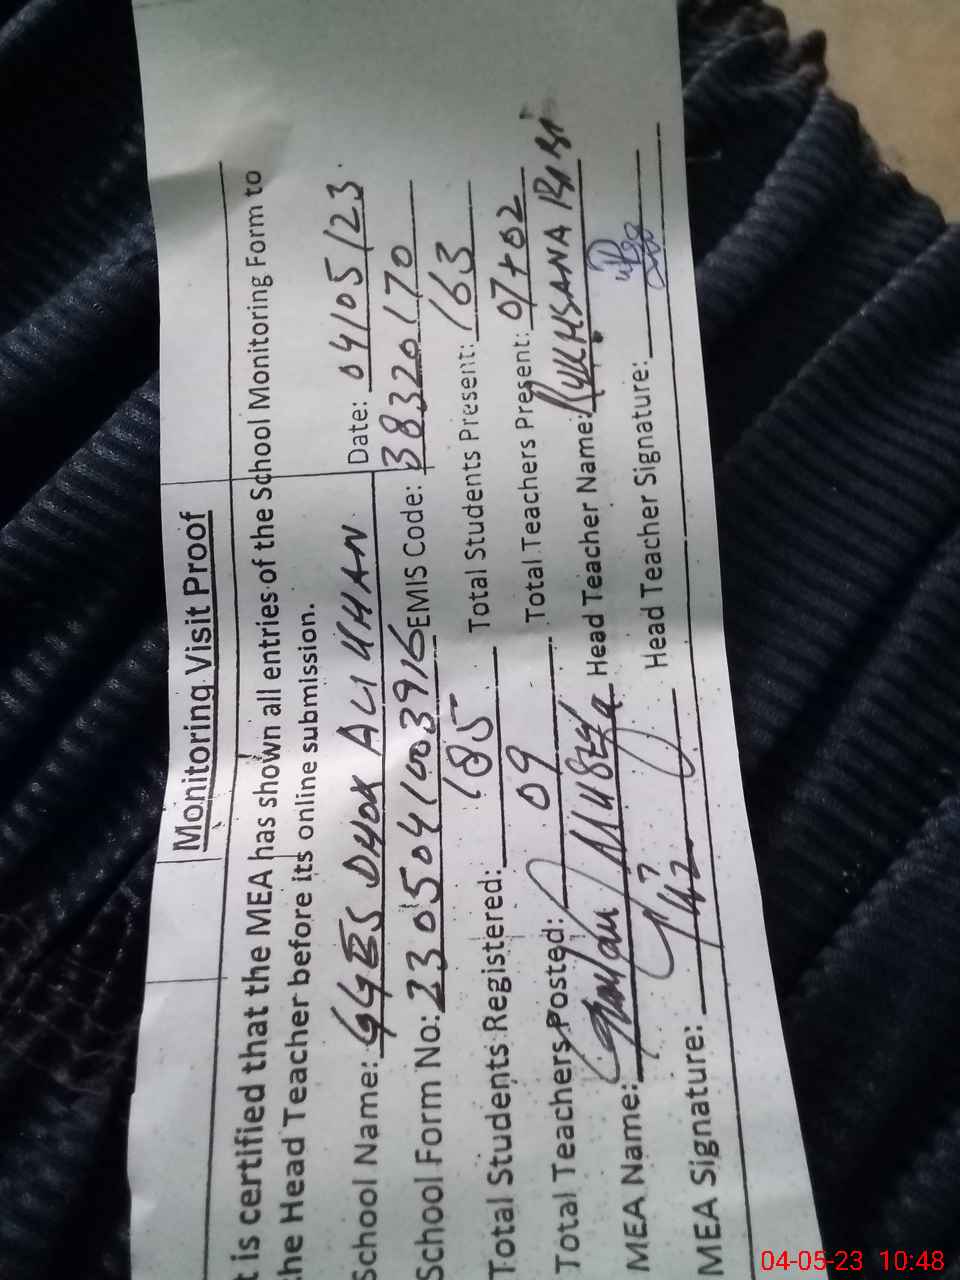 Monitoring Visit Proof
t is certified that the MEA has shown all entries of the School Monitoring Form to
the Head Teacher before its online submission.
School Name: GGES DHOK ALI KHAN Date: 04/05/23
School Form No: 2305041003916 EMIS Code: 38320170
Total Students Registered: 185 Total Students Present: 163
Total Teachers Posted: 09 Total Teachers Present: 07+02
MEA Name: Head Teacher Name: RUKHSANA BIBI
MEA Signature: Head Teacher Signature:
04-05-23 10:48